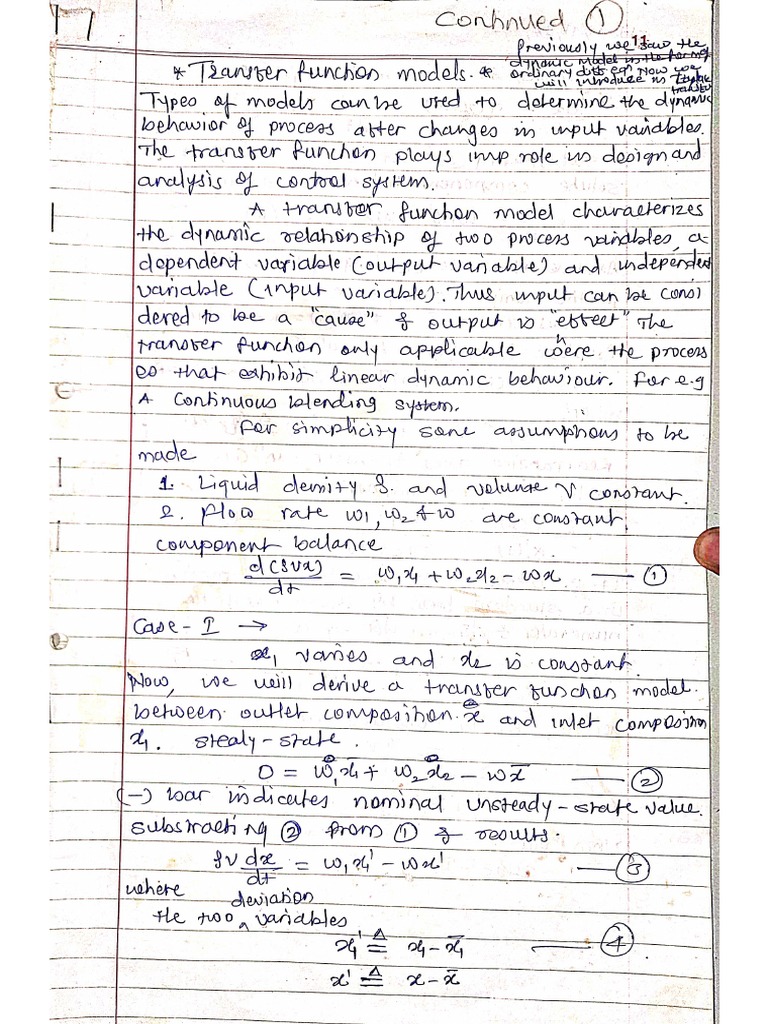 Continued ①
11
previously we saw the
dynamic model in the form of
* Transfer function models. * ordinary diff eqn. Now we
will introduce in
transfer
Types of models can be used to determine the dynamic
behavior of process after changes in input variables.
The transfer function plays imp role in design and
analysis of control system.
A transfer function model characterizes
the dynamic relationship of two process variables, a
dependent variable (output variable) and independent
variable (input variable). Thus input can be consi
dered to be a "cause" & output is "effect" The
transfer function only applicable where the process
es that exhibit linear dynamic behaviour. For e.g
A continuous blending system.
For simplicity some assumptions to be
made
1. Liquid density ρ and volume V constant.
2. flow rate w1, w2 & w are constant.
component balance
d(ρVx)/dt = w₁x₁ + w₂x₂ - wx —— ①
Case - I →
x₁ varies and x₂ is constant.
Now, we will derive a transfer function model.
between outlet composition x and inlet composition
x₁. stealy-state.
0 = w̄₁x̄₁ + w₂x̄₂ - wx̄ —— ②
(-) bar indicates nominal unsteady-state value.
substracting ② from ① & results.
ρV dx/dt = w₁x₁' - wx' —— ③
where deviation
the two ^ variables
x₁' ≜ x₁ - x̄₁ —— ④
x' ≜ x - x̄